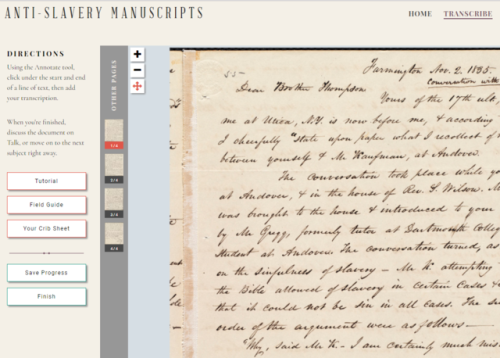 ANTI-SLAVERY MANUSCRIPTS
HOME TRANSCRIBE
DIRECTIONS
Using the Annotate tool,
click under the start and end
of a line of text, then add
your transcription.
When you're finished,
discuss the document on
Talk, or move on to the next
subject right away.
Tutorial
Field Guide
Your Crib Sheet
Save Progress
Finish
OTHER PAGES
Farmington Nov. 2. 1835.
conversation with
55
Dear Brother Thompson
Yours of the 17th ult.
me at Utica, N.Y. is now before me, & according
I cheerfully "state upon paper what I recollect of
between yourself & Mr. Kaufman, at Andover.
The conversation took place while yo
at Andover, & in the house of Rev. S. Wilson. M
was brought to the house & introduced to your
by Mr. Gregg, formerly tutor at Dartmouth Colleg
student at Andover. The conversation turned, as
on the sinfulness of slavery — Mr K attempting
the Bible allowed of slavery in certain cases &
that it could not be sin in all cases. The
order of the argument were as follows—
"Why, said Mr K - I am certainly much mis